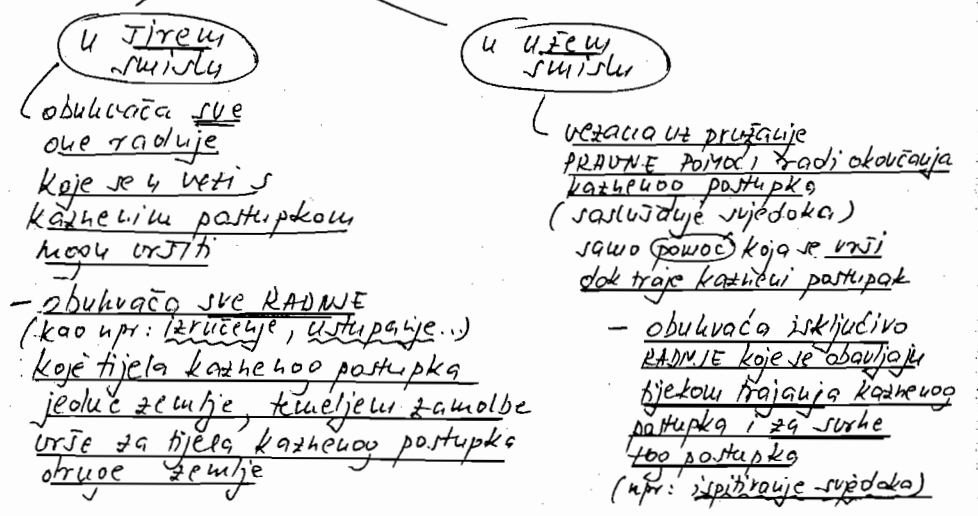 u širem
smislu
obuhvaća sve
one radnje
koje se u vezi s
kaznenim postupkom
mogu vršiti
- obuhvaća sve RADNJE
(kao npr: izručenje, ustupanje...)
koje tijela kaznenog postupka
jedne zemlje, temeljem zamolbe
vrše za tijela kaznenog postupka
druge zemlje
u užem
smislu
vezana uz pružanje
PRAVNE POMOĆI radi okončanja
kaznenog postupka
(saslušanje svjedoka)
samo pomoć koja se vrši
dok traje kazneni postupak
- obuhvaća isključivo
RADNJE koje se obavljaju
tijekom trajanja kaznenog
postupka i za svrhe
tog postupka
(npr: ispitivanje svjedoka)